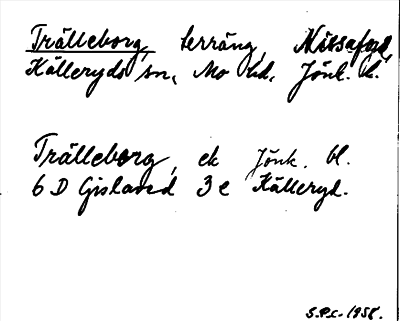 Trälleborg, terräng, Nissafors,
Källeryds sn, Mo hd, Jönk. l.
Trälleborg, ek Jönk. bl.
6 D Gislaved 3 e Källeryd.
S.P.C. 1958.